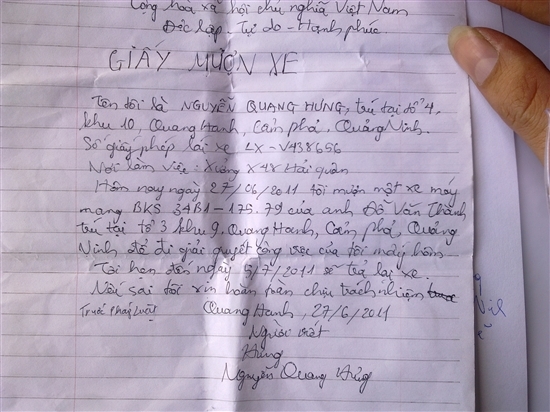 Cộng hòa xã hội chủ nghĩa Việt Nam
Độc lập - Tự do - Hạnh phúc
GIẤY MƯỢN XE
Tên tôi là NGUYỄN QUANG HƯNG, trú tại tổ 4,
khu 10, Quang Hanh, Cẩm phả, Quảng Ninh.
Số giấy phép lái xe LX - V438656
Nơi làm việc: Xưởng X48 Hải quân
Hôm nay ngày 27/06/2011 tôi mượn một xe máy
mang BKS 34B1 - 175.79 của anh Đỗ Văn Thành
trú tại tổ 3 khu 9, Quang Hanh, Cẩm phả, Quảng
Ninh để đi giải quyết công việc của tôi mấy hôm.
Tới hạn đến ngày 5/7/2011 sẽ trả lại xe.
Nếu sai tôi xin hoàn toàn chịu trách nhiệm
Trước Pháp luật
Quang Hanh, 27/6/2011
Người viết
Hưng
Nguyễn Quang Hưng